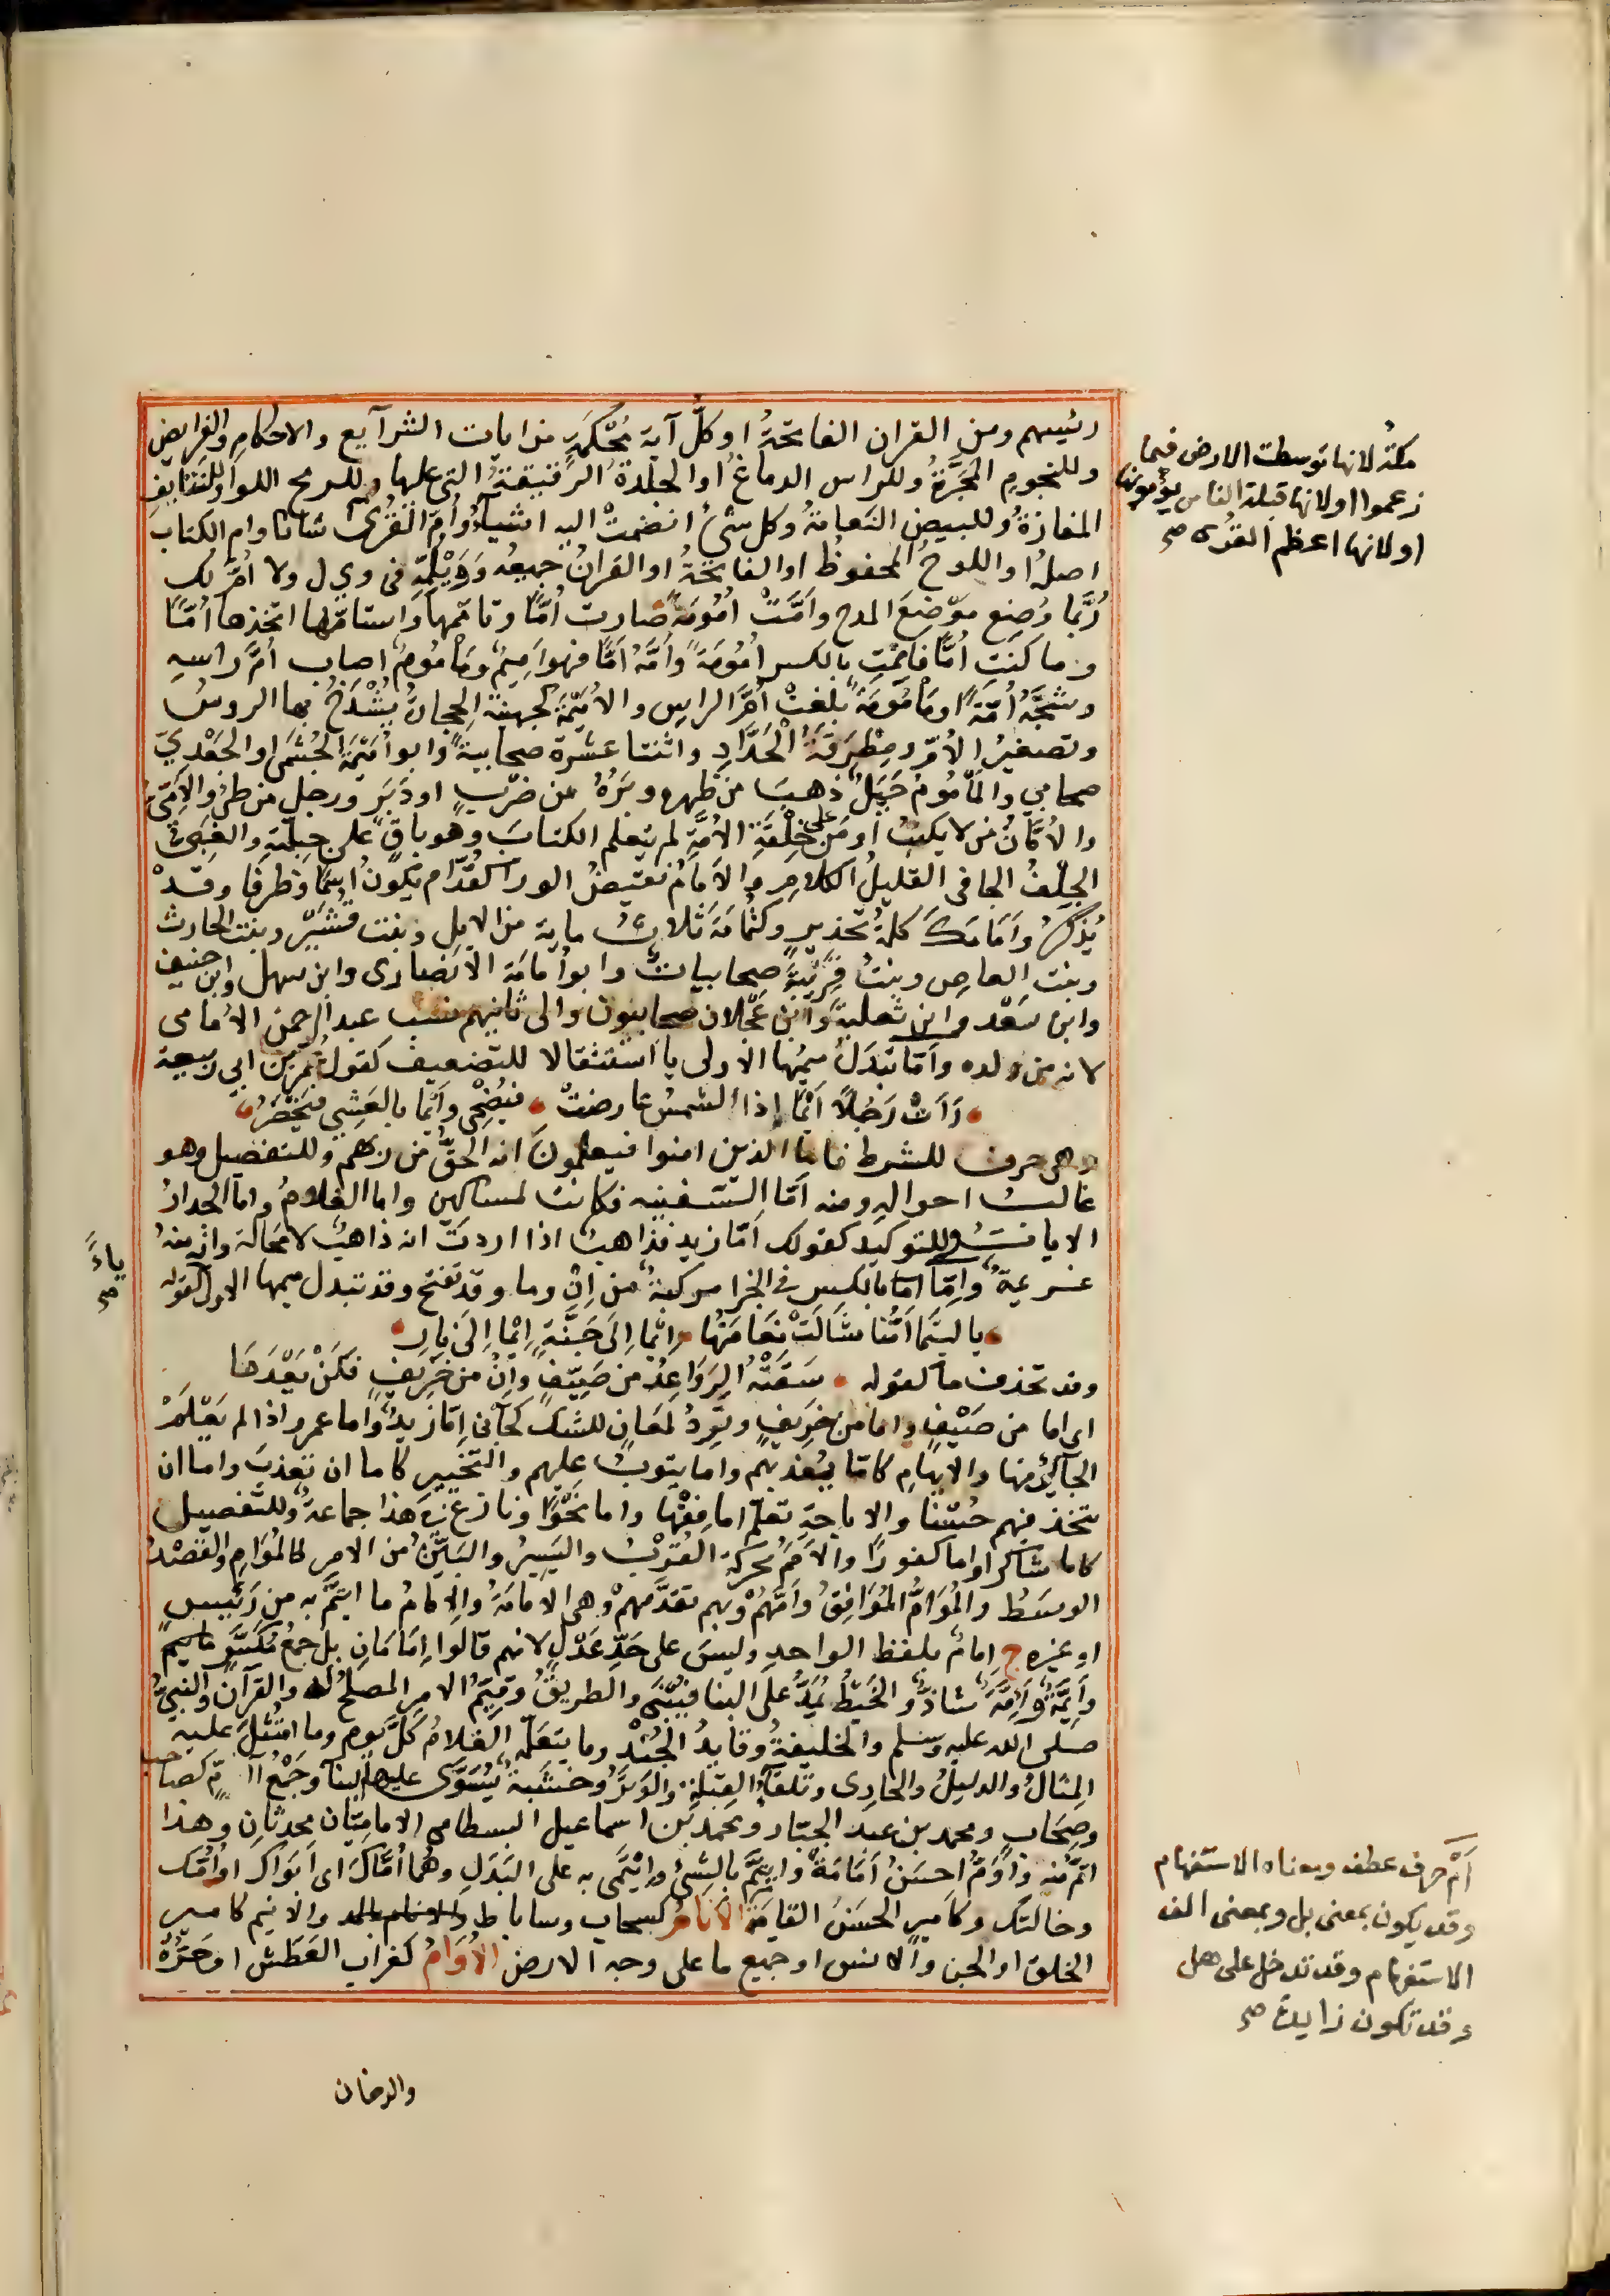 رئيسهم ومن القران الفاتحةُ او كلُّ آية مُحْكَمَةٍ من ايات الشرآيع والاحكامِ والفرايض
وللنجومِ المَجَرَّةُ وللراس الدماغُ او الجلدةُ الرقيقةُ التي عليها وللرمح اللوا وللتنايفِ
المفازةُ وللبيض النَعامةُ وكل شيءٍ انضمتْ اليه اشياءُ وأمّ القُرى
اصلُهُ او اللوحُ المحفوظُ او الفاتحةُ او القرانُ جميعُه وَوَيْلُمِّهِ فى وي ل ولا اُمَّ لك
رُبَّما وُضِع موْضِعَ المدح وأمَّتْ أُمُومَةً صارت أُمًّا وتأمّمها واستامّها اتخذها أُمًّا
وما كنتِ أُمًّا فاَمِمْتِ بالكسر أُمُومَةً وأمَّهُ أَمًّا فهو اَمِيمٌ ومَامُومٌ اصاب أُمَّ راسِهِ
وشَجَّةٌ آمَّةٌ ومَامُومَةٌ بلغتْ أُمَّ الراسِ والأُمَيْمَةُ كجهينة الحجارةُ يُشْدَخُ بها الروسُ
وتصغيرُ الأُمِّ ومِطْرَقَةُ الْحَدَّادِ واثنتا عشرة صحابيةً وابو أُمَيْمَةَ الجُشَمى او الجَعْديّ
صحابي والمَأْمُومُ جَمَلٌ ذهبَ من ظهره وبَرُهُ من ضرْبٍ او دَبَرٍ ورجل من طيّ والاُمّىّ
والاُمَّانُ من لا يكتبُ او من على خِلْقَةِ الأُمَّةِ لم يتعلم الكتابَ وهو باقٍ على جِبِلّتِهِ والغبىُّ
الجِلْفُ الجافى القليلُ الكلامِ والاَمَامُ نقيضُ الورا كقُدّام يكونُ اسْمًا وظرفًا وقدْ
يُذَكَّرُ وأَمَامَكَ كلمةُ تحذيرٍ وكثُمَامَةَ ثلاثُ ماية من الابل وبنت قُشَيْر وبنت الحارث
وبنت العاصِ وبنتُ قُرَيْبَةَ صحابياتٌ وابو أُمامَة الانصارى وابن سهل وابن حنيف
وابن سَعْد وابن ثعلبةَ وابن عَجْلان صحابيون والى ثانيهم نسب عبد الرحمن الاُمامى
لانه من ولده وأمّا تبدلُ ميمُها الاولى يا استثقالا للتضعيف كقول عُمر بن ابي ربيعة
رَاَتْ رَجُلاً اَيْمَا إذا الشمسُ عارضتْ فيُضْحِى وأيْمَا بالعَشِي فيَخْصَرُ
وهى حرف للشرط فاما الذين امنوا فيعلمونَ انه الحقُّ من ربهم وللتفصيل وهو
غالبُ احوالهِ ومنه أمّا السَّفينه فكانت لمساكين واما الغلامُ واما الجدارُ
الايات وللتوكيد كقولك أمّا زيد فذاهبٌ اذا اردتَ انه ذاهبٌ لا محالة وانه منهُ
عزيمةٌ وإمّا بالكسر فى الجزا مركبةٌ من إنْ وما وقد تفتح وقد تبدل ميمها الاولى كقوله
يا ليتَما أُمُّنا شَالَتْ نَعَامَتُها ايْما اِلَى جَنَّةٍ اِيْما اِلَى نَارِ
وقد تحذف ما كقوله سَقَتْهُ الرَوَاعِدُ من صَيِّفٍ وإنْ من خَرِيفٍ فَلَنْ يَعْدَمَا
اى اما من صَيْفٍ واما من خريفٍ وتَرِدُ لمعَانٍ للشك كجآنى إمّا زيدٌ واما عمرو اذا لم يَعْلَمْ
الجآئى منها والابهامِ كامّا يُعذبهم واما يتوبُ عليهم والتخيير كاما ان تعذبَ واما ان
تتخذ فيهم حُسْنًا والاباحةِ تعلّم اما فِقْهًا واما نَحْوًا ونازع فى هذا جماعةٌ وللتفصيل
كاما شاكرا واما كفورًا والأَمَمُ محركة القُرْبُ واليَسِيرُ والبَيِّنُ من الامرِ كالمُؤامِ والقَصْدُ
الوسَطُ والمُؤَامُّ المُوَافِقُ وأمَّهُمْ وبهم تقدَّمهمْ وهى الامامَةُ والإمامُ ما ايتمَّ به من رَئيسٍ
او غيره ج إمامٌ بلفظ الواحدِ وليسَ على حَدِّ عَدْلٍ لانهم قالوا إمَامَانِ بل جمعٌ مُكَسَّرٌ
وأيمّةٌ وأئِمَّةٌ شاذٌّ والخَيْطُ يُمَدُّ على البنا فيُبْنَى والطريقُ وقَيِّمُ الامرِ المصلحُ له والقرآن والنبيّ
صلى الله عليه وسلم والخليفةُ وقايدُ الجُنْدِ وما يتعلّمه الغلامُ كلَّ يومٍ وما امْتُثِلَ عليه
المِثالُ والدليلُ والحادى وتلقآءُ القبلةِ والوَتَرُ وخشبةٌ يُسَوَّى عليها البنآ وجَمْعُ آمّ كصاحب
وصِحَابٍ ومحمد بن عبد الجبّار ومحمد بن اسماعيل البسطامى الاماميّان محدثانِ وهذا
ايمُّ منه واوَمُّ احسنُ اَمَامَةً وايتمَّ بالشىءِ وايْتَمَى به على البَدَلِ وهُما أُمّاكَ اى أبَواكَ او أُمّك
وخالتك وكامير الحَسَنُ القامَةِ الأَنَامُ كسحاب وساباط والانيم كامير
الخلق او الجن والانس او جميع ما على وجه الارض الأُوَامُ كغراب العَطَش او حَرُّهُ
والدخان
مكة لانها توسطت الارض فيما
زعموا او لانها قبلة الناس يؤمونها
او لانها اعظم القُرى صح
ياءً
صح
أمْ حرف عطف ومعناه الاستفهام
وقد يكون بمعنى بل وبمعنى الف
الاستفهام وقد تدخل على هل
وقد تكون زايدة صح